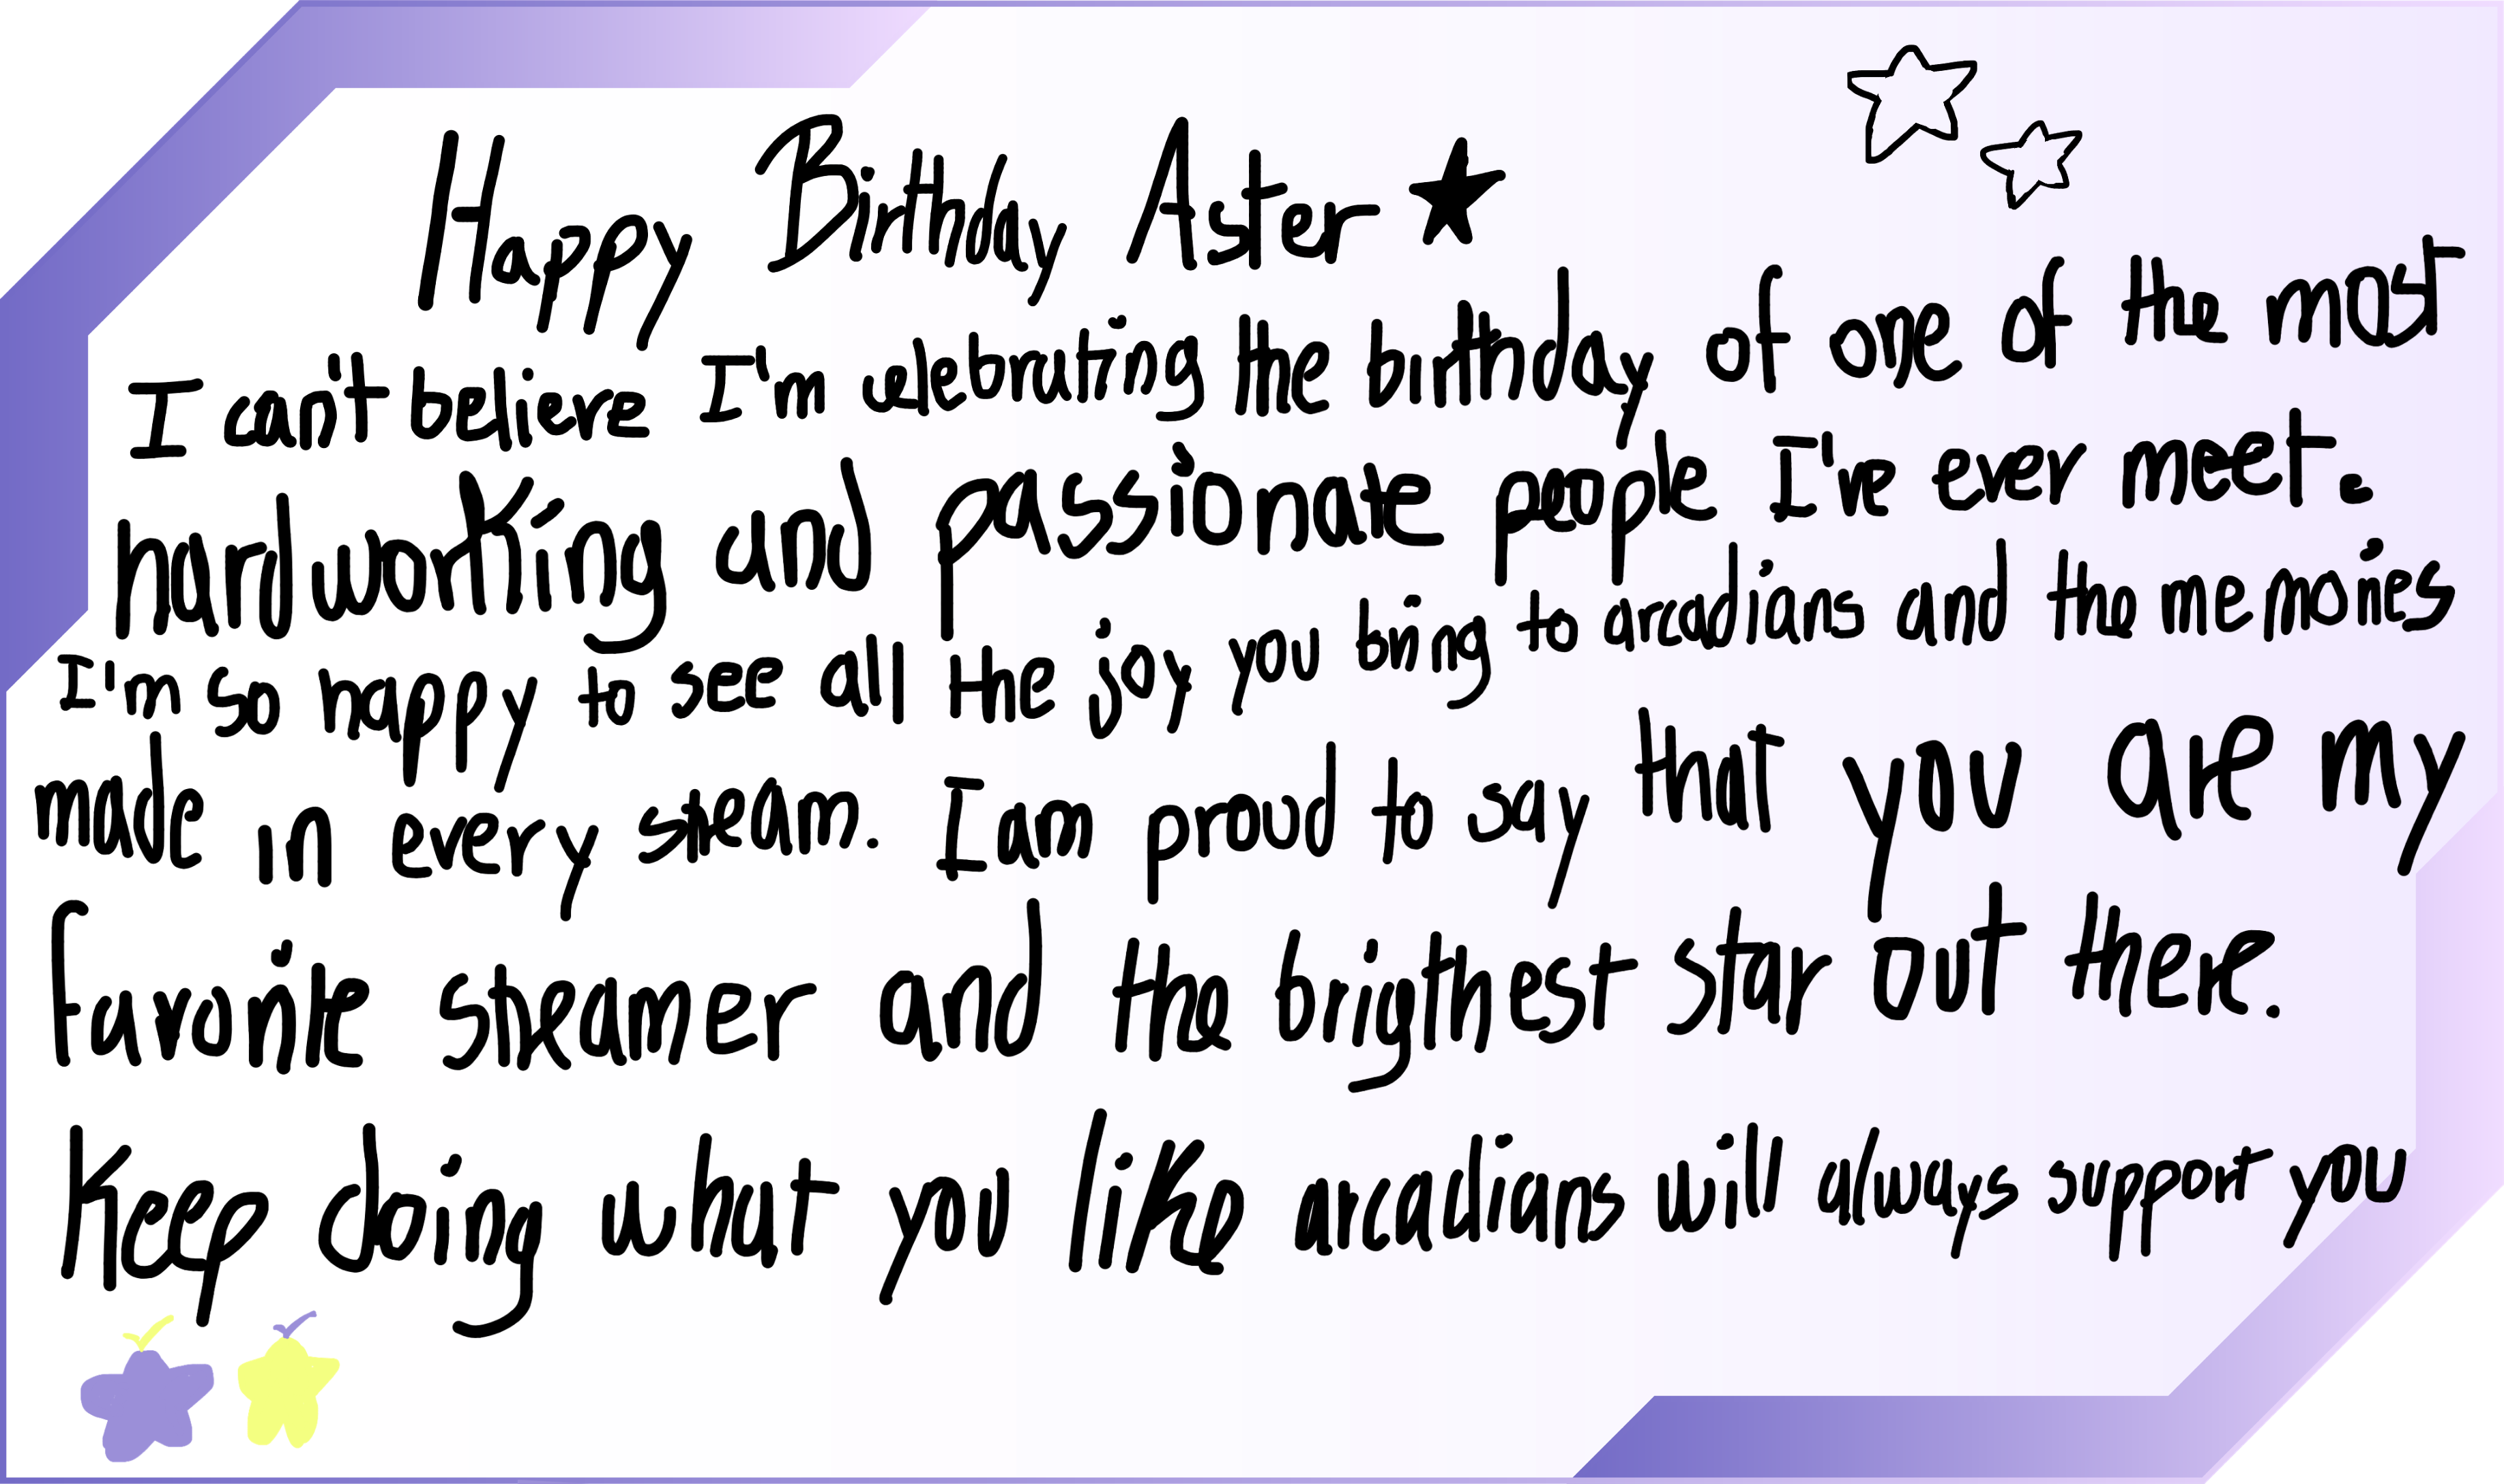 Happy Birthday Aster ★
I can't believe I'm celebrating the birthday of one of the most
hardworking and passionate people I've ever meet.
I'm so happy to see all the joy you bring to arcadians and the memories
made in every stream. I am proud to say that you are my
favorite streamer and the brigthest star out there.
Keep doing what you like arcadians will always support you